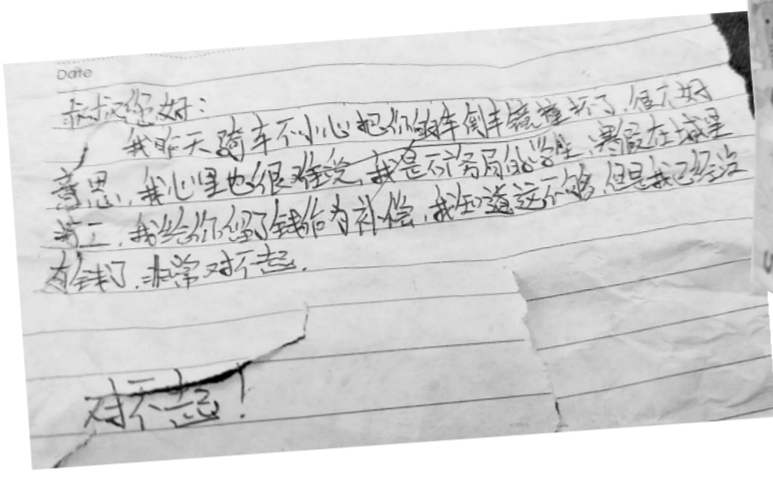 Date
叔叔您好:
我昨天骑车不小心把你的车倒车镜撞坏了,很不好
意思,我心里也很难受,我是 的学生,寒假在城里
打工,我给你留了钱作为补偿,我知道这不够,但是我已经没
有钱了,非常对不起.
对不起!